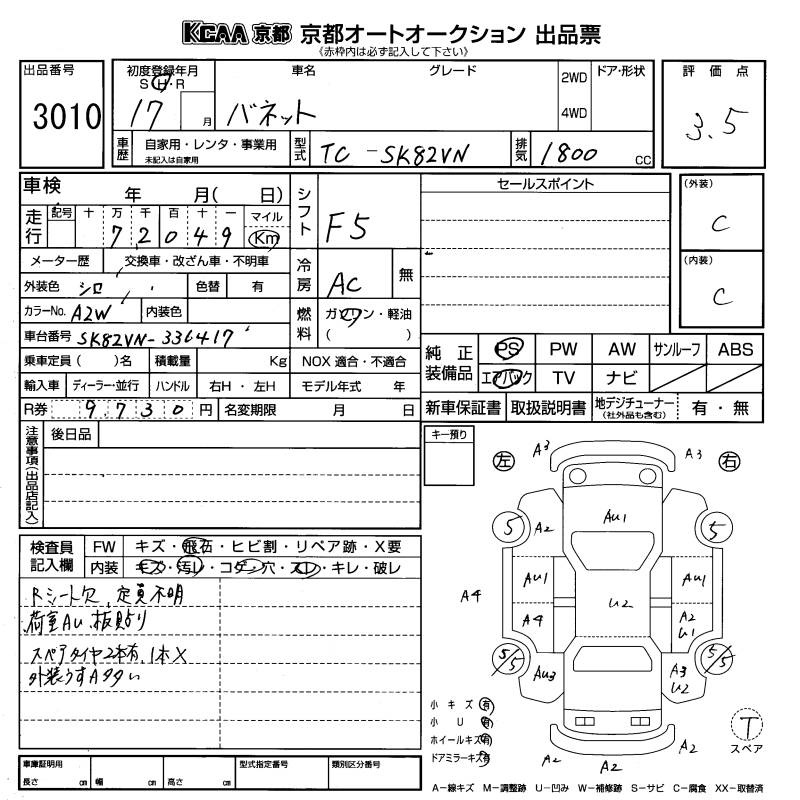 KCAA 京都 京都オートオークション 出品票
《赤枠内は必ず記入して下さい》
出品番号
3010
初度登録年月
S・H・R
17 月
車名
バネット
グレード
2WD
4WD
ドア・形状
評価点
3.5
車歴
自家用・レンタ・事業用
未記入は自家用
型式
TC - SK82VN
排気
1800 CC
車検 年 月( 日)
シフト
F5
走行
記号 十 万 千 百 十 一 マイル
7 2 0 4 9 Km
メーター歴 交換車・改ざん車・不明車
冷房
AC
無
外装色 シロ 色替 有
カラーNo. A2W 内装色
燃料
ガソリン・軽油
( )
車台番号 SK82VN-336417
乗車定員( )名 積載量 Kg NOX 適合・不適合
輸入車 ディーラー・並行 ハンドル 右H・左H モデル年式 年
R券 9730 円 名変期限 月 日
セールスポイント
(外装)
C
(内装)
C
純正装備品
PS PW AW サンルーフ ABS
エアバック TV ナビ
新車保証書 取扱説明書 地デジチューナー
(社外品も含む)
有・無
注意事項(出品店記入)
後日品
キー預り
検査員記入欄
FW キズ・飛石・ヒビ割・リペア跡・X要
内装 キズ・汚レ・コゲ・穴・スレ・キレ・破レ
Rシート欠、定員不明
荷室AU、板貼り
スペアタイヤ2本有、1本X
外装うすA多い
左 右
A3 A3
5 A2 AU1 5
A4 AU1 AU1
A4 U2 A2
U1
5/5 AU3 A3
U2 5/5
A2 A2 A2
T
スペア
小キズ 有
小U 有
ホイールキズ 有
ドアミラーキズ 有
A－線キズ M－調整跡 U－凹み W－補修跡 S－サビ C－腐食 XX－取替済
車庫証明用
長さ cm 幅 cm 高さ cm
型式指定番号
類別区分番号